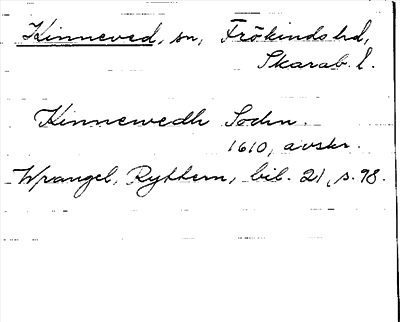 Kinneved, sn, Frökinds hd,
Skarab. l.
Kinnewedh Sochn.
1610, avskr.
Wrangel, Ryttern, bil. 21, s. 98.